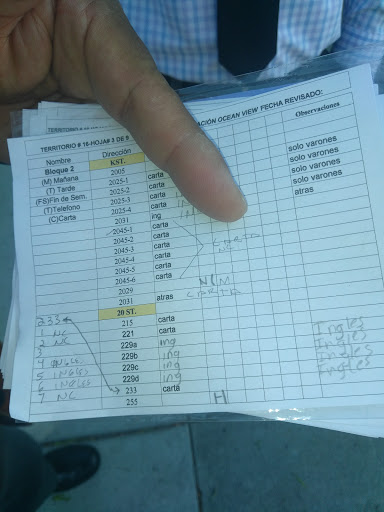 TERRITORIO # 16-HOJA# 3 DE 9
ACIÓN OCEAN VIEW FECHA REVISADO:
Nombre Dirección Observaciones
Bloque 2 KST.
(M) Mañana 2005
(T) Tarde 2025-1 carta solo varones
(FS)Fin de Sem. 2025-2 carta solo varones
(T)Telefono 2025-3 carta solo varones
(C)Carta 2025-4 carta solo varones
2031 ing atras
2045-1 carta
2045-2 carta
2045-3 carta
2045-4 carta
2045-5 carta
2045-6 carta
2029
2031 atras CARTA
20 ST.
233 215 carta
1 NC 221 carta Ingles
2 NC 229a ing Ingles
3 229b ing Ingles
4 INGLES 229c ing Ingles
5 INGLES 229d ing
6 INGLES 233 carta
7 NC 255 H